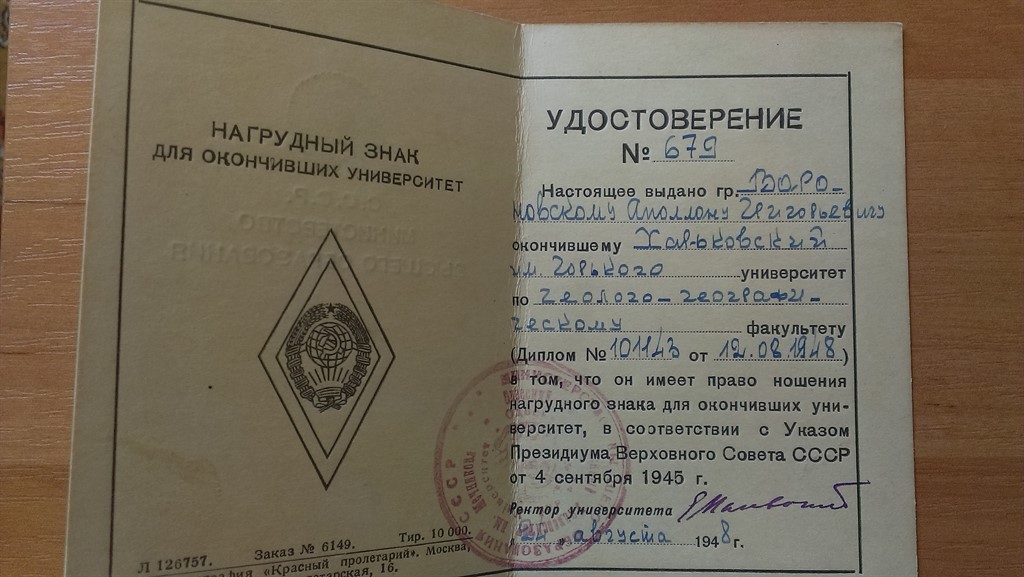 НАГРУДНЫЙ ЗНАК
ДЛЯ ОКОНЧИВШИХ УНИВЕРСИТЕТ
Л 126757.
Заказ № 6149.
Тир. 10 000.
«Красный пролетарий». Москва,
16.
УДОСТОВЕРЕНИЕ
№ 679
Настоящее выдано гр. Воро-
новскому Аполлону Григорьевичу
окончившему Харьковский
им. Горького университет
по геолого-географи-
ческому факультету
(Диплом № 101143 от 12.08.1948)
в том, что он имеет право ношения
нагрудного знака для окончивших уни-
верситет, в соответствии с Указом
Президиума Верховного Совета СССР
от 4 сентября 1945 г.
Ректор университета
августа 1948 г.